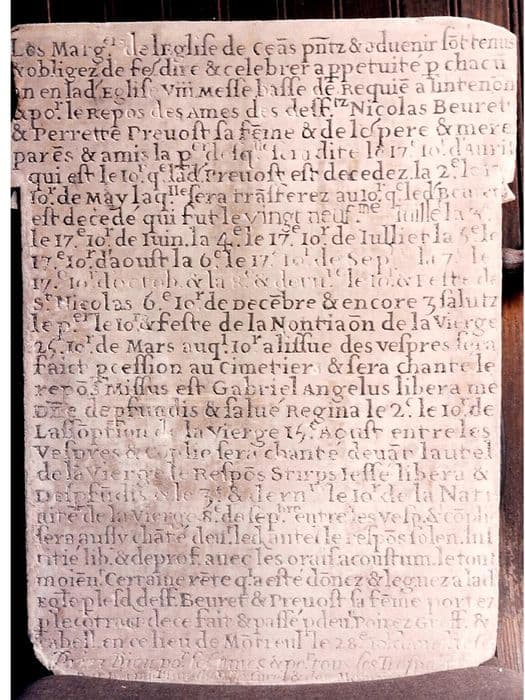 Les Marg.ers de lEglise de Ceās pn̄tz & aduenir sōt tenus
& obligez de fe dire & celebrer a ppetuite p chacū
an en lad Eglise VIII Messe basse de Requiē a lintenōn
& po.r le Repos des Ames des deff.tz Nicolas Beuret
& Perrette Preuost sa fēme & de lespere & mere
parēs & amis la p.er desq.lle sera dite le 17.e io.r dAuril
qui est le io.r q.e lad Preuost est decedez la 2.e le 17
io.r de May laq.lle sera trāsferez au io.r q.e led Beuret
est decede qui fut le vingt neuf.me Iuille la 3.e
le 17.e io.r de Iuin la 4.e le 17.e io.r de Iullier la 5.e le
17.e io.r daoust la 6.e le 17 io.r de Sep. la 7. le
17. io.r doctob & la 8.e & dern. le io.r & Feste de
S.t Nicolas 6.e io.r de Decēbre & encore 3 salutz
le p.er le io.r & feste de la Nontiaōn de la Vierge
25. io.r de Mars auql io.r a lissue des vespres sera
faict pcession au Cimetier & sera chante le
repōs Missus est Gabriel Angelus libera me
Dn̄e de pfundis & salue Regina le 2.e le io.r de
Lassōption de la Vierge 15.e Aoust entre les
Vespres & Cōplie sera chante deuāt lautel
de la Vierge le Respōs Stirps Iesse libera &
Depfūdis & le 3.e & dern. le io.r de la Nati
uite de la Vierge 8.e de sep.bre entre les vesp. & cōpli
sera aussy chāte deu. led autel le respōs solem Ius
titiē lib. & de prof. auec les orais acoustum. le tout
moiēn. Certaine rēte q. a este dōnez & leguez a lad
Egle p lesd. deff. Beuret & Preuost sa fēme portez
p le cōtract de ce fait & passé pdeu. Poirez Greff. &
tabell. en ce lieu de Mōtreul le 28.e io.r
Priez Dieu po.r les ames & po.r tous les Trespas